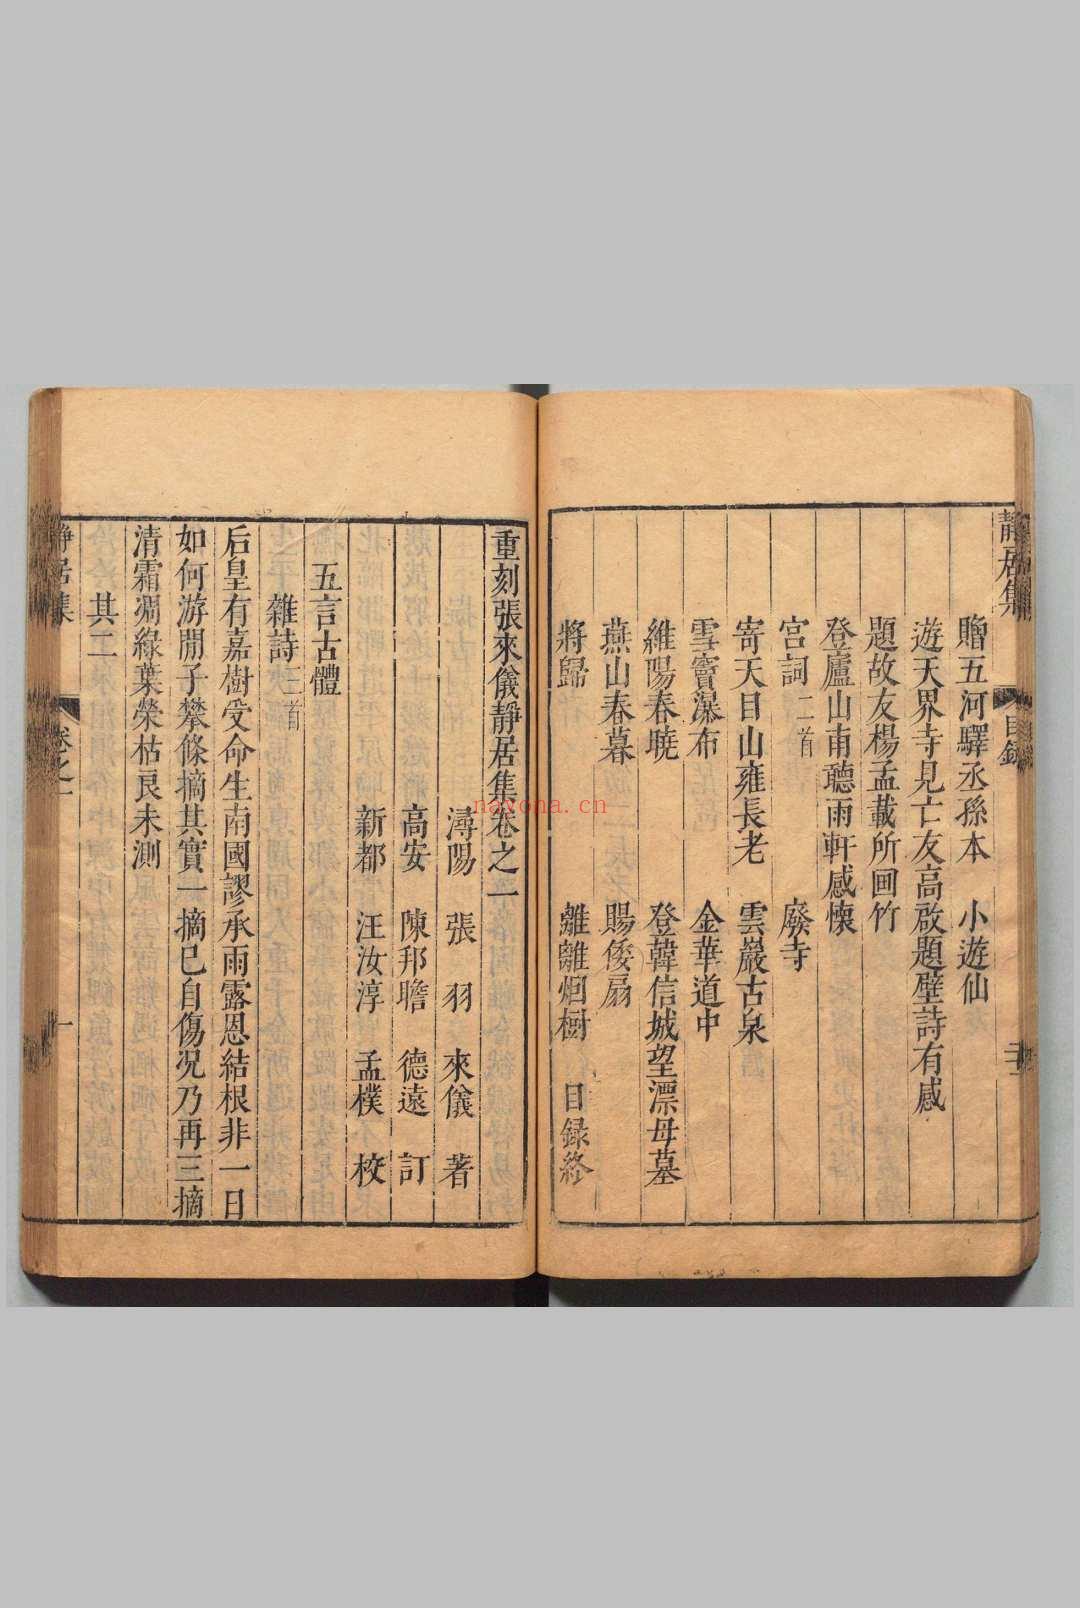 靜居集
目錄
贈五河驛丞孫本 小遊仙
遊天界寺見亡友高啟題壁詩有感
題故友楊孟載所画竹
登廬山甫聽雨軒感懷
宮詞二首 廢寺
寄天目山雍長老 雲巖古泉
雪竇瀑布 金華道中
維陽春曉 登韓信城望漂母墓
燕山春暮 賜倭扇
將歸 離離烟樹 目録終
重刻張來儀靜居集卷之一
潯陽 張 羽 來儀 著
高安 陳邦瞻 德遠 訂
新都 汪汝淳 孟樸 校
五言古體
雜詩三首
后皇有嘉樹受命生南國謬承雨露恩結根非一日
如何游閒子攀條摘其實一摘已自傷况乃再三摘
清霜凋綠葉榮枯良未測
其二
靜居集 卷之一 一
nayona.cn